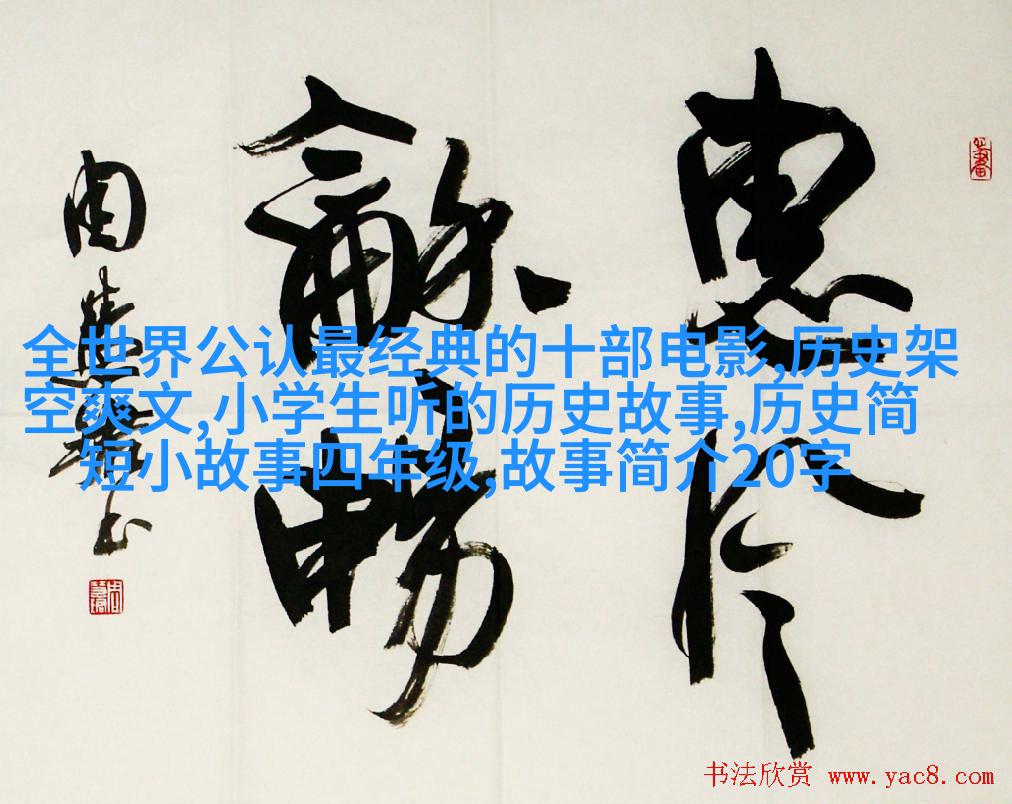 惠风
和畅
全世界公认最经典的十部电影,历史架
空爽文,小学生听的历史故事,历史简
短小故事四年级,故事简介20字
书法欣赏 www.yac8.com